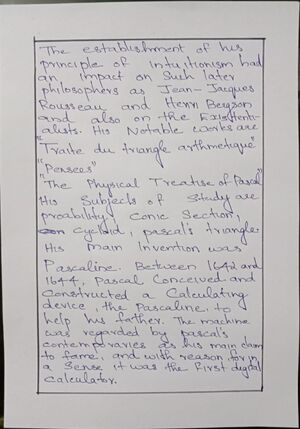 The establishment of his
principle of Intuitionism had
an impact on Such later
philosophers as Jean-Jacques
Rousseau and Henri Bergson
and also on the Existenti-
alists. His Notable works are
"Traite du triangle arthmetique"
"Pensees"
"The Physical Treatise of Pascal"
His Subjects of Study are
proability, Conic Section,
cycloid, pascal's triangle.
His Main Invention was
Pascaline. Between 1642 and
1644, Pascal Conceived and
Constructed a Calculating
device, the Pascaline, to
help his father. The machine
was regarded by pascal's
contemporaries as his main claim
to fame, and with reason, for in
a Sense it was the First digital
calculator.